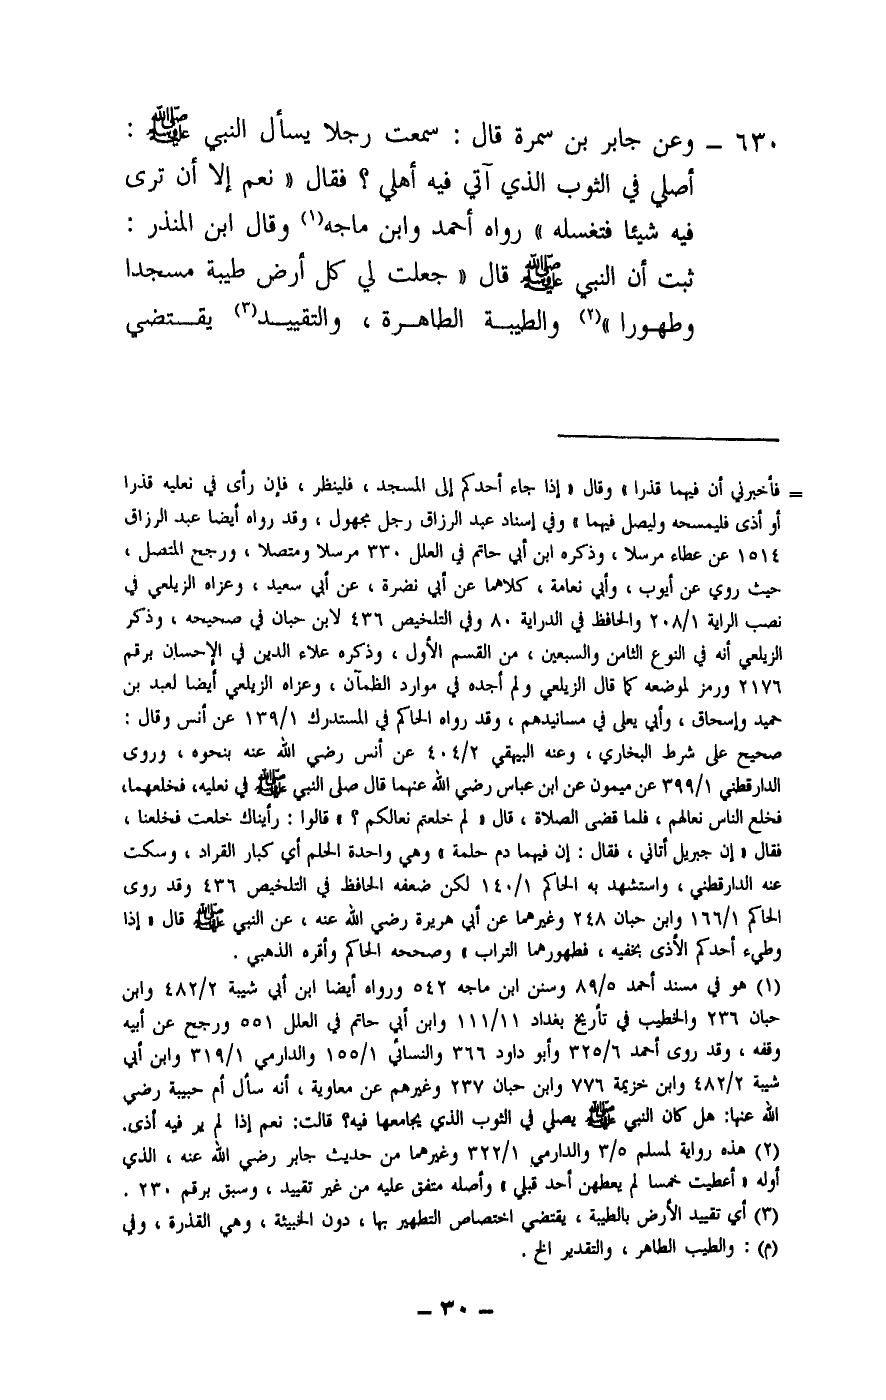 ٦٣٠ – وعن جابر بن سمرة قال : سمعت رجلا يسأل النبي ﷺ :
أصلي في الثوب الذي آتي فيه أهلي ؟ فقال « نعم إلا أن ترى
فيه شيئا فتغسله » رواه أحمد وابن ماجه(١) وقال ابن المنذر :
ثبت أن النبي ﷺ قال « جعلت لي كل أرض طيبة مسجدا
وطهورا »(٢) والطيبة الطاهرة ، والتقييد(٣) يقتضي
= فأخبرني أن فيهما قذرا » وقال « إذا جاء أحدكم إلى المسجد ، فلينظر ، فإن رأى في نعليه قذرا
أو أذى فليمسحه وليصل فيهما » وفي إسناد عبد الرزاق رجل مجهول ، وقد رواه أيضا عبد الرزاق
١٥١٤ عن عطاء مرسلا ، وذكره ابن أبي حاتم في العلل ٣٣٠ مرسلا ومتصلا ، ورجح المتصل ،
حيث روي عن أيوب ، وأبي نعامة ، كلاهما عن أبي نضرة ، عن أبي سعيد ، وعزاه الزيلعي في
نصب الراية ٢٠٨/١ والحافظ في الدراية ٨٠ وفي التلخيص ٤٣٦ لابن حبان في صحيحه ، وذكر
الزيلعي أنه في النوع الثامن والسبعين ، من القسم الأول ، وذكره علاء الدين في الإحسان برقم
٢١٧٦ ورمز لموضعه كما قال الزيلعي ولم أجده في موارد الظمآن ، وعزاه الزيلعي أيضا لعبد بن
حميد وإسحاق ، وأبي يعلى في مسانيدهم ، وقد رواه الحاكم في المستدرك ١٣٩/١ عن أنس وقال :
صحيح على شرط البخاري ، وعنه البيهقي ٤٠٤/٢ عن أنس رضي الله عنه بنحوه ، وروى
الدارقطني ٣٩٩/١ عن ميمون عن ابن عباس رضي الله عنهما قال صلى النبي ﷺ في نعليه، فخلعهما،
فخلع الناس نعالهم ، فلما قضى الصلاة ، قال « لم خلعتم نعالكم ؟ » قالوا : رأيناك خلعت فخلعنا ،
فقال « إن جبريل أتاني ، فقال : إن فيهما دم حلمة » وهي واحدة الحلم أي كبار القراد ، وسكت
عنه الدارقطني ، واستشهد به الحاكم ١٤٠/١ لكن ضعفه الحافظ في التلخيص ٤٣٦ وقد روى
الحاكم ١٦٦/١ وابن حبان ٢٤٨ وغيرهما عن أبي هريرة رضي الله عنه ، عن النبي ﷺ قال « إذا
وطيء أحدكم الأذى بخفيه ، فطهورهما التراب » وصححه الحاكم وأقره الذهبي .
(١) هو في مسند أحمد ٨٩/٥ وسنن ابن ماجه ٥٤٢ ورواه أيضا ابن أبي شيبة ٤٨٢/٢ وابن
حبان ٢٣٦ والخطيب في تأريخ بغداد ١١١/١١ وابن أبي حاتم في العلل ٥٥١ ورجح عن أبيه
وقفه ، وقد روى أحمد ٣٢٥/٦ وأبو داود ٣٦٦ والنسائي ١٥٥/١ والدارمي ٣١٩/١ وابن أبي
شيبة ٤٨٢/٢ وابن خزيمة ٧٧٦ وابن حبان ٢٣٧ وغيرهم عن معاوية ، أنه سأل أم حبيبة رضي
الله عنها: هل كان النبي ﷺ يصلي في الثوب الذي يجامعها فيه؟ قالت: نعم إذا لم ير فيه أذى.
(٢) هذه رواية لمسلم ٣/٥ والدارمي ٣٢٢/١ وغيرهما من حديث جابر رضي الله عنه ، الذي
أوله « أعطيت خمسا لم يعطهن أحد قبلي » وأصله متفق عليه من غير تقييد ، وسبق برقم ٢٣٠ .
(٣) أي تقييد الأرض بالطيبة ، يقتضي اختصاص التطهير بها ، دون الخبيثة ، وهي القذرة ، وفي
(م) : والطيب الطاهر ، والتقدير الخ .
– ٣٠ –